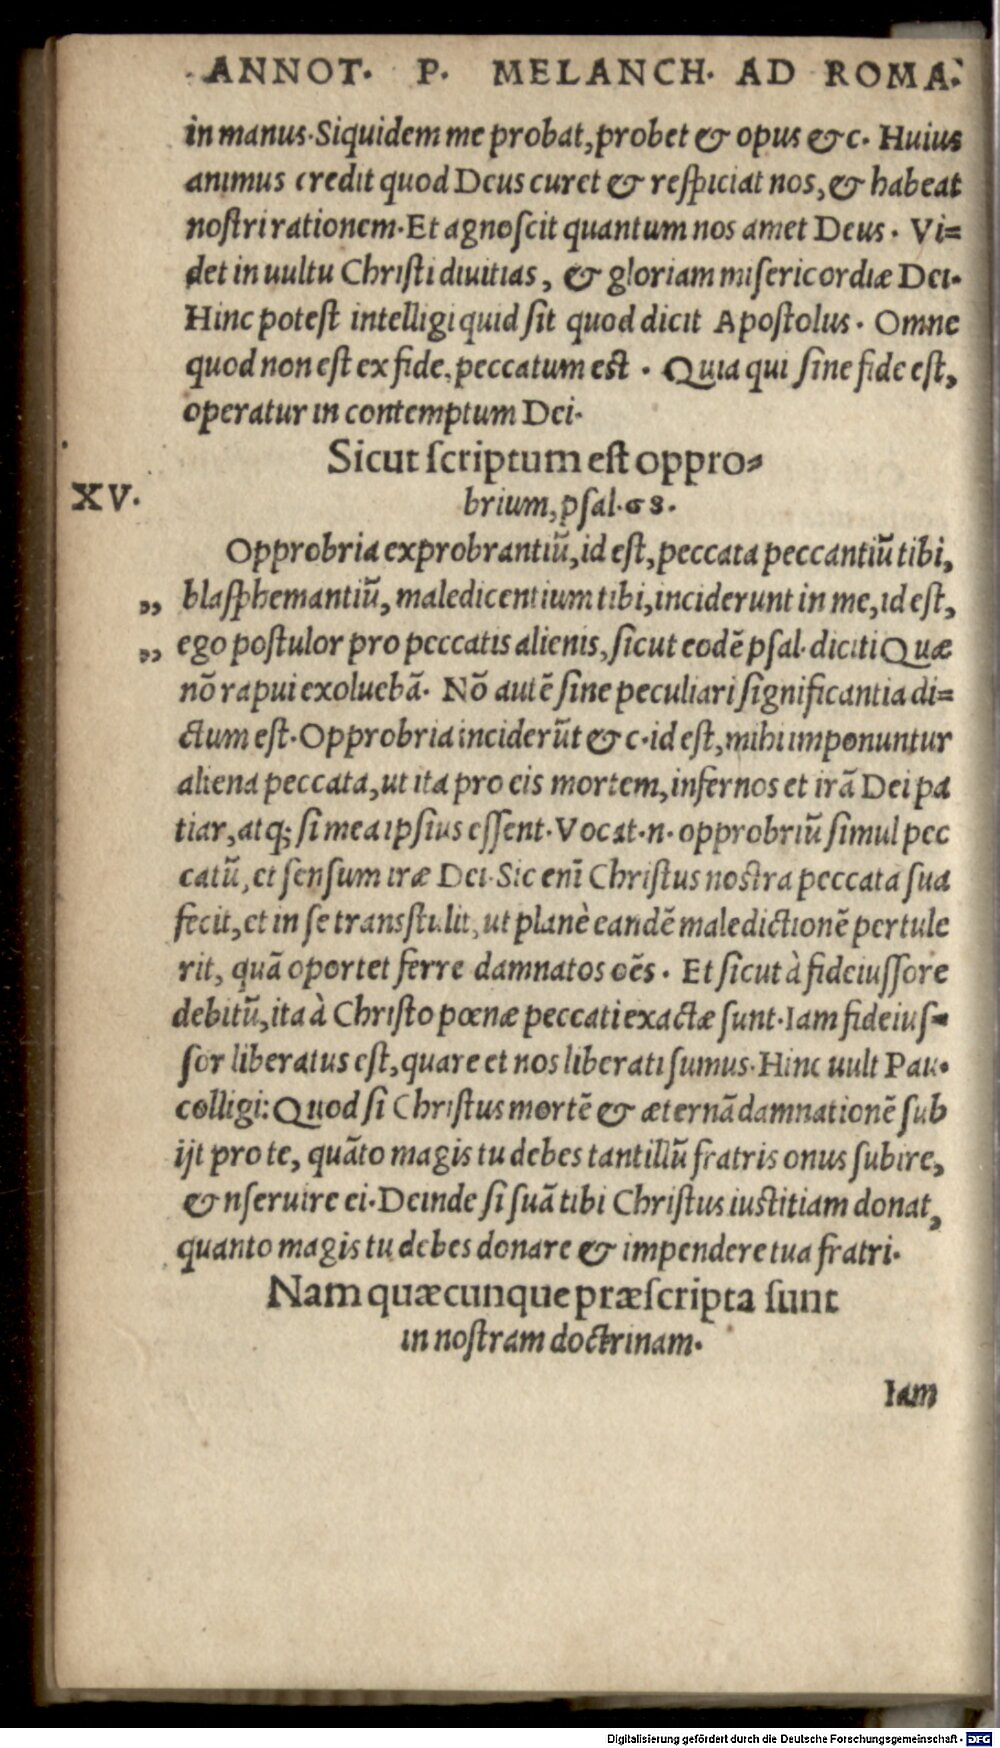 ANNOT. P. MELANCH. AD ROMA.
in manus. Siquidem me probat, probet & opus &c. Huius
animus credit quod Deus curet & reſpiciat nos, & habeat
noſtri rationem. Et agnoſcit quantum nos amet Deus. Vi=
det in uultu Chriſti diuitias, & gloriam miſericordiæ Dei.
Hinc poteſt intelligi quid ſit quod dicit Apoſtolus. Omne
quod non eſt ex fide, peccatum est. Quia qui ſine fide eſt,
operatur in contemptum Dei.
Sicut ſcriptum eſt oppro=
XV. brium, pſal. 68.
Opprobria exprobrantiũ, id eſt, peccata peccantiũ tibi,
„ blaſphemantiũ, maledicentium tibi, inciderunt in me, id eſt,
„ ego poſtulor pro peccatis alienis, ſicut eodẽ pſal. diciti Quæ
nõ rapui exoluebã. Nõ autẽ ſine peculiari ſignificantia di=
ctum eſt. Opprobria inciderũt &c. id eſt, mihi imponuntur
aliena peccata, ut ita pro eis mortem, infernos et irã Dei pa
tiar, atq; ſi mea ipſius eſſent. Vocat .n. opprobriũ ſimul pec
catũ, et ſenſum iræ Dei. Sic enĩ Chriſtus nostra peccata ſua
fecit, et in ſe transſtulit, ut planè eandẽ maledictionẽ pertule
rit, quã oportet ferre damnatos oẽs. Et ſicut à fideiuſſore
debitũ, ita à Chriſto pœnæ peccati exactæ ſunt. Iam fideiuſ=
ſor liberatus eſt, quare et nos liberati ſumus. Hinc uult Pau.
colligi: Quod ſi Chriſtus mortẽ & æternã damnationẽ ſub
ijt pro te, quãto magis tu debes tantillũ fratris onus ſubire,
& nſeruire ei. Deinde ſi ſuã tibi Chriſtus iustitiam donat,
quanto magis tu debes donare & impendere tua fratri.
Nam quæcunque præſcripta ſunt
in noſtram doctrinam.
Iam
Digitalisierung gefördert durch die Deutsche Forschungsgemeinschaft - DFG